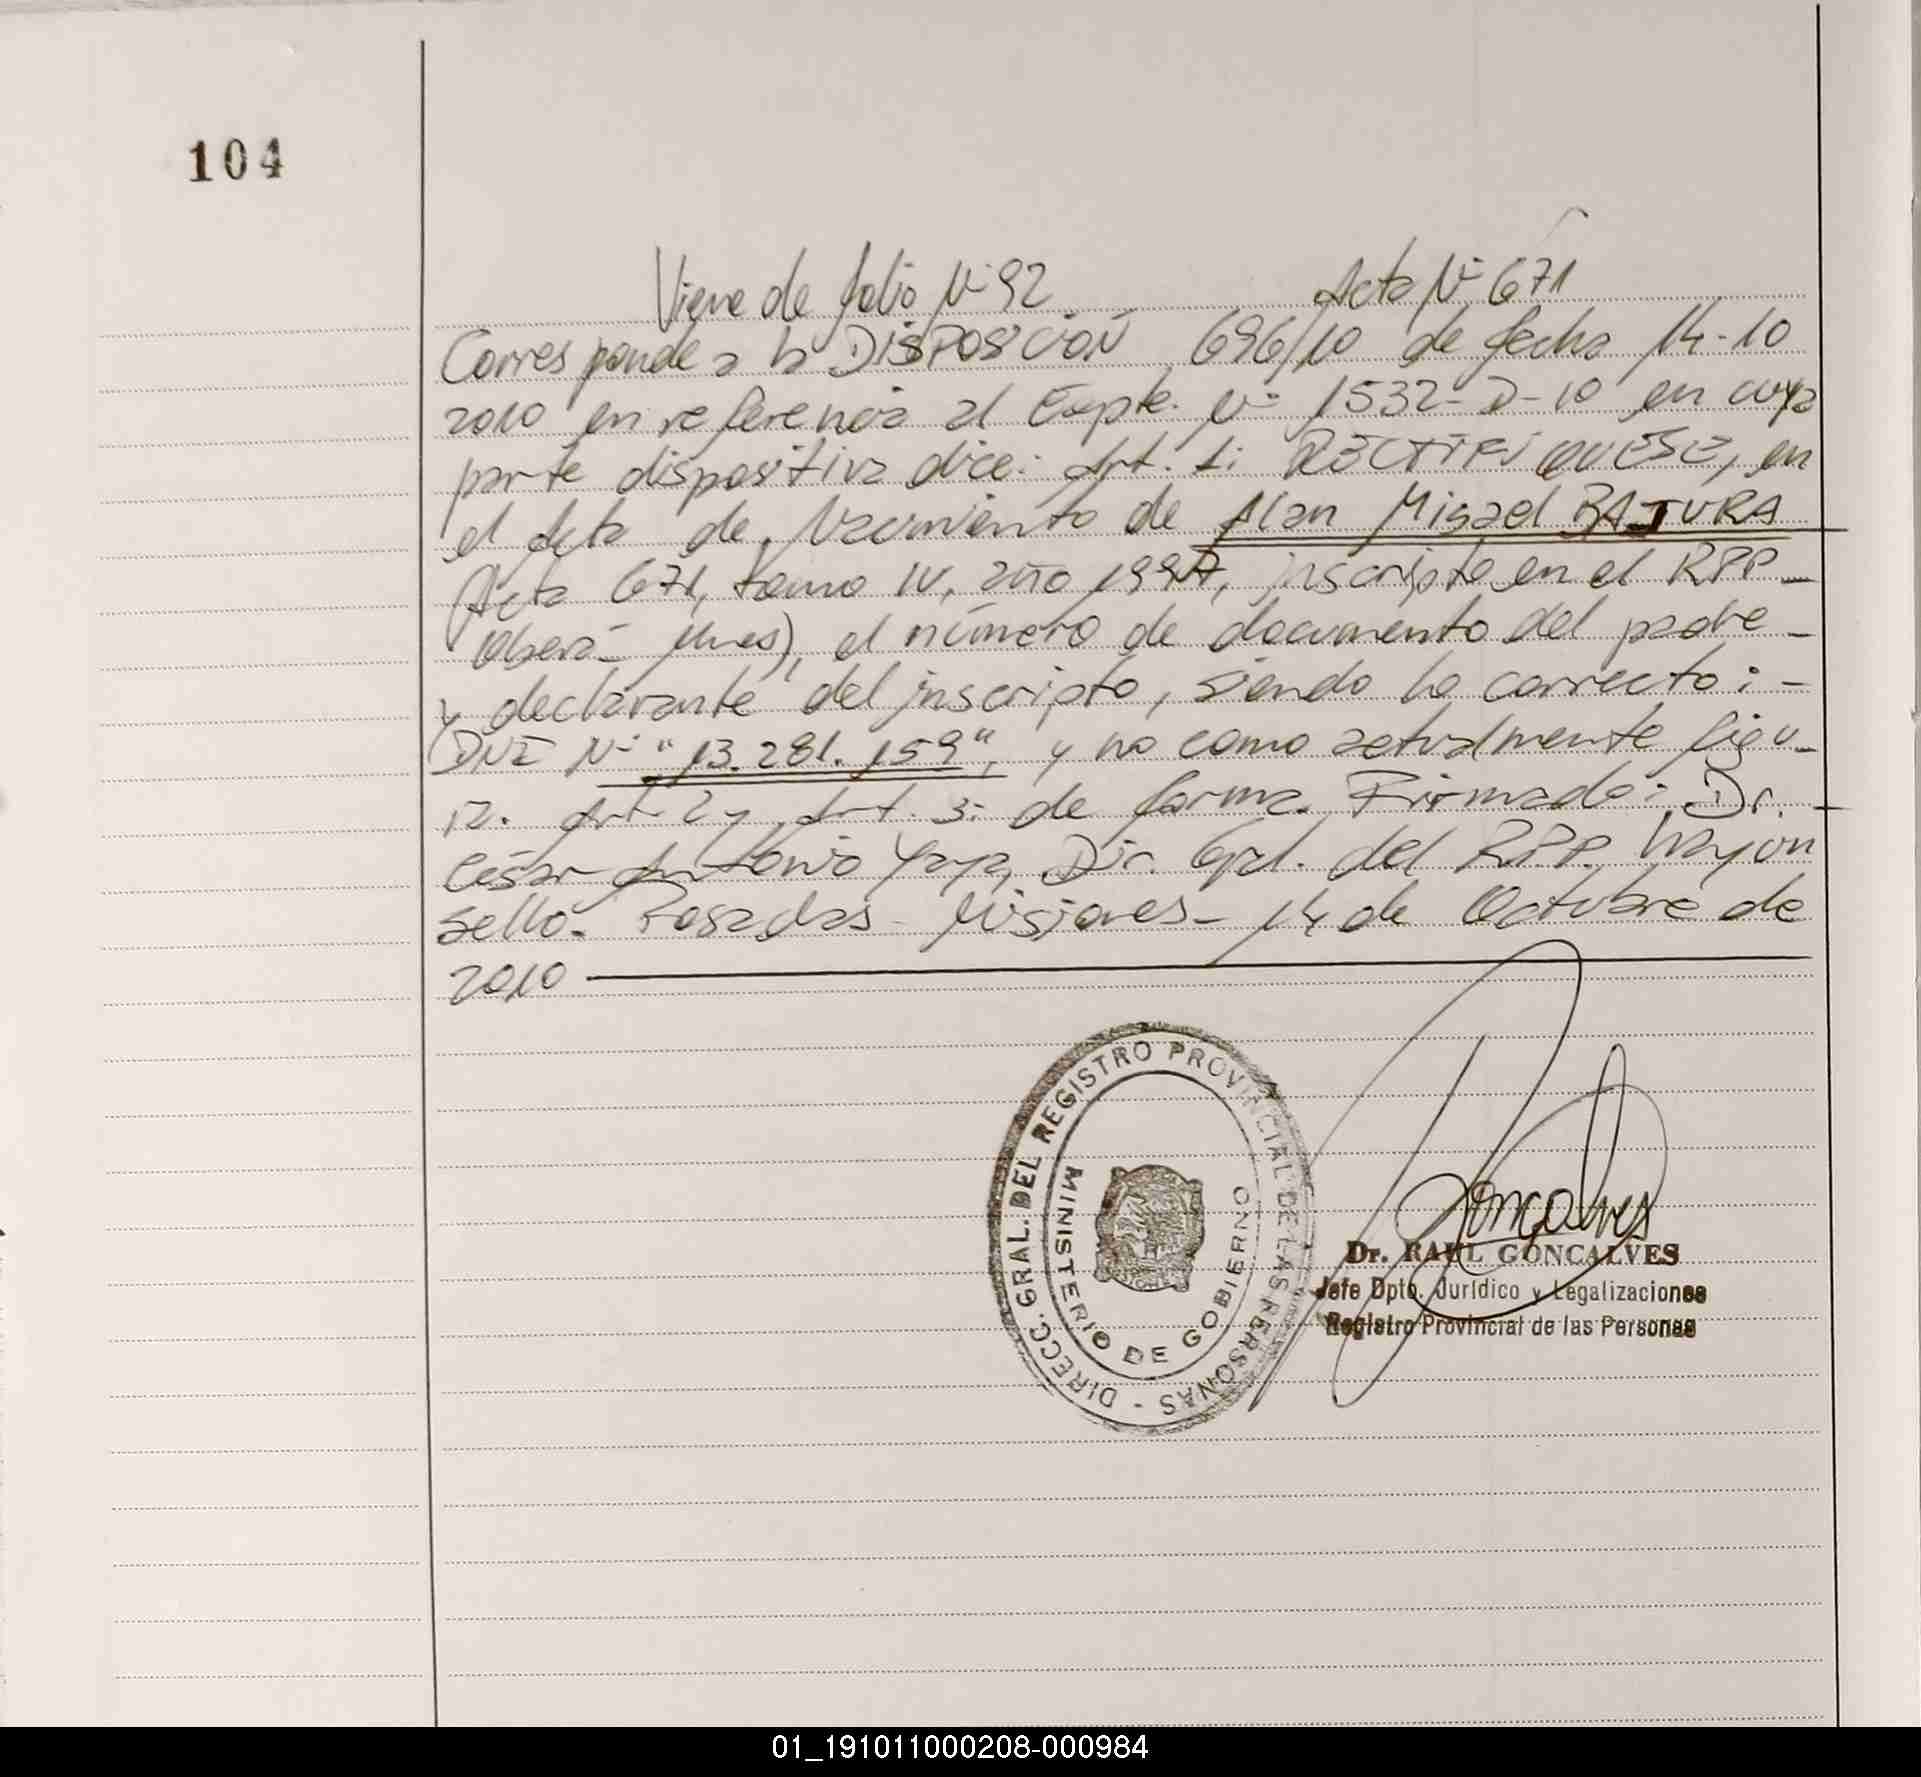 104
Viene de folio Nº 92 Acta Nº 671
Corresponde a la DISPOSICIÓN 696/10 de fecha 14-10
2010 en referencia al Expte. Nº 1532-D-10 en cuya
parte dispositiva dice: Art. 1: RECTIFIQUESE, en
el Acta de Nacimiento de Alan Misael BAJURA
Acta 671, tomo IV, año 1997, inscripta en el RPP
Oberá - Mnes), el número de documento del padre -
y declarante del inscripto, siendo lo correcto: -
DNI Nº "13.281.159", y no como actualmente figu-
ra. Art. 2 y Art. 3: de forma. Firmado: Dr. -
César Antonio Yaya, Dir. Gral. del RPP. Hay un
sello. Posadas - Misiones - 14 de Octubre de
2010
DIRECC. GRAL. DEL REGISTRO PROVINCIAL DE LAS PERSONAS -
MINISTERIO DE GOBIERNO
Goncalves
Dr. RAUL GONCALVES
Jefe Dpto. Jurídico y Legalizaciones
Registro Provincial de las Personas
01_191011000208-000984